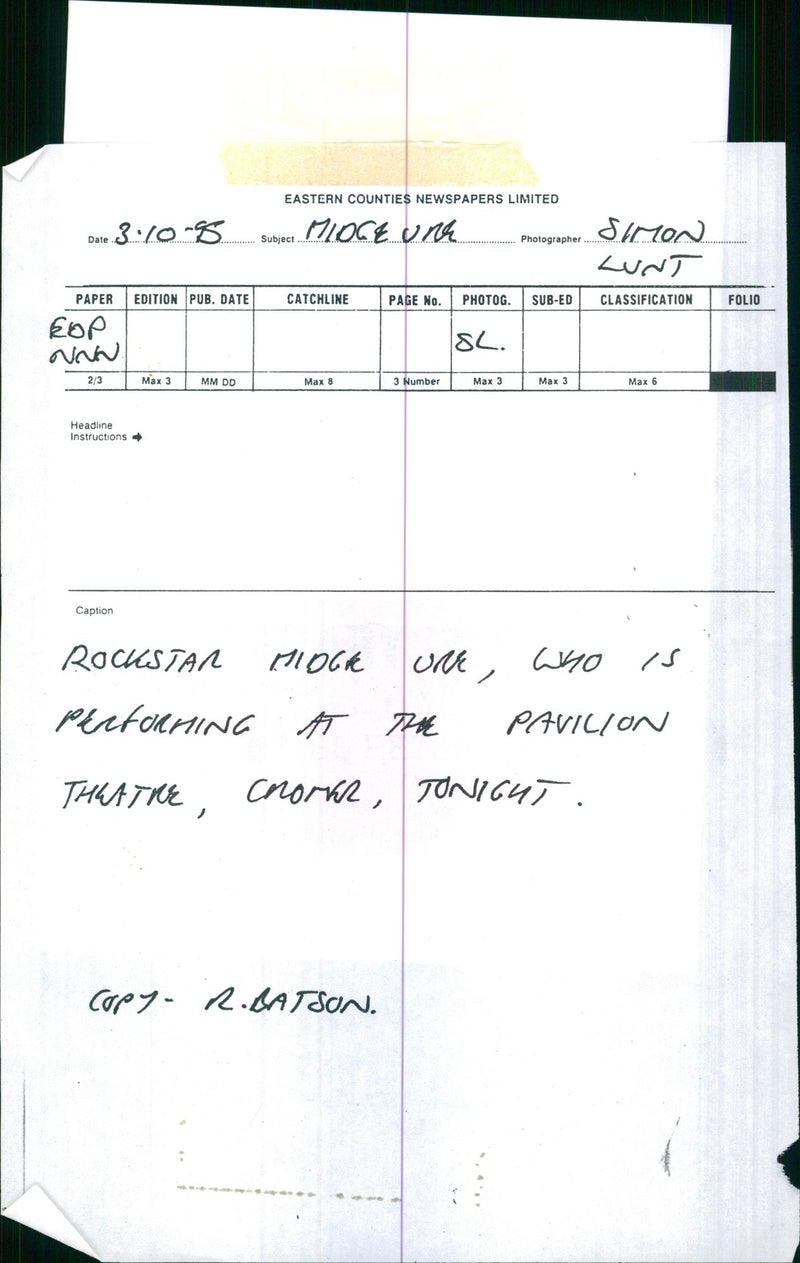 EASTERN COUNTIES NEWSPAPERS LIMITED
Date 3·10-95 Subject MIDGE URE Photographer SIMON
LUNT
PAPER EDITION PUB. DATE CATCHLINE PAGE No. PHOTOG. SUB-ED CLASSIFICATION FOLIO
EDP
NNN SL.
2/3 Max 3 MM DD Max 8 3 Number Max 3 Max 3 Max 6
Headline
Instructions ➔
Caption
ROCKSTAR MIDGE URE, WHO IS
PERFORMING AT THE PAVILION
THEATRE, CROMER, TONIGHT.
COPY- R. BATSON.